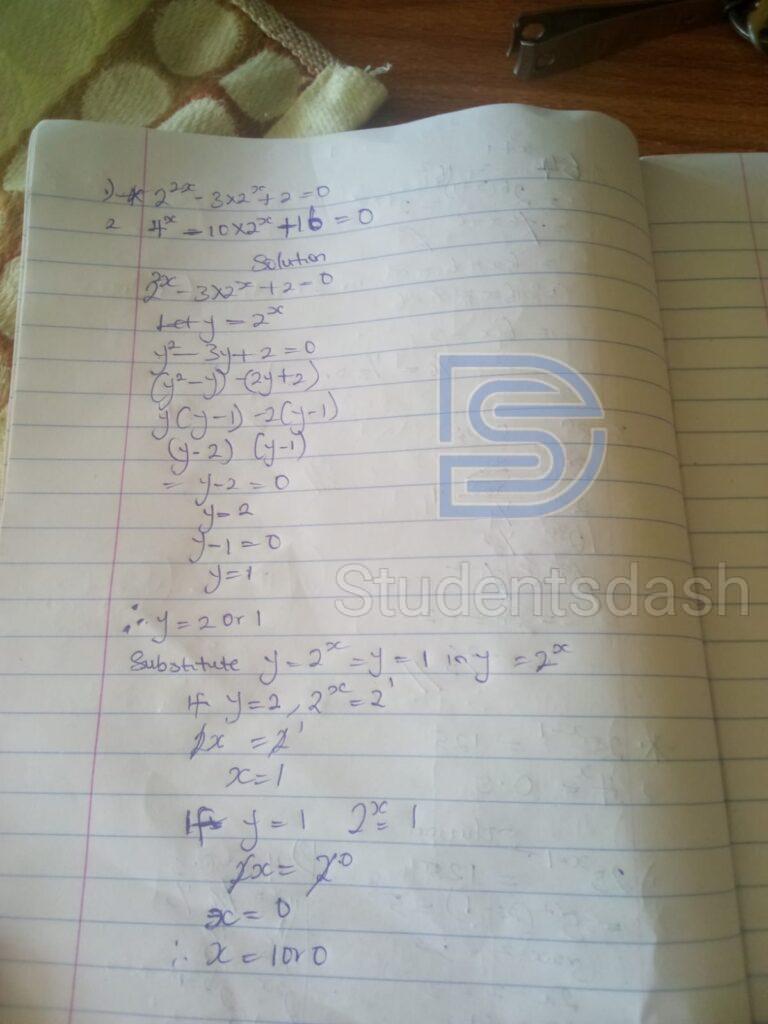 1) 2^2x - 3x2^x + 2 = 0
2 4^x - 10x2^x + 16 = 0
Solution
2^2x - 3x2^x + 2 = 0
Let y = 2^x
y² - 3y + 2 = 0
(y² - y) - (2y + 2)
y(y - 1) - 2(y - 1)
(y - 2) (y - 1)
= y - 2 = 0
y = 2
y - 1 = 0
y = 1
Studentsdash
∴ y = 2 or 1
Substitute y = 2^x = y = 1 in y = 2^x
If y = 2, 2^x = 2^1
2x = 2^1
x = 1
If y = 1 2^x = 1
2x = 2^0
x = 0
∴ x = 1 or 0